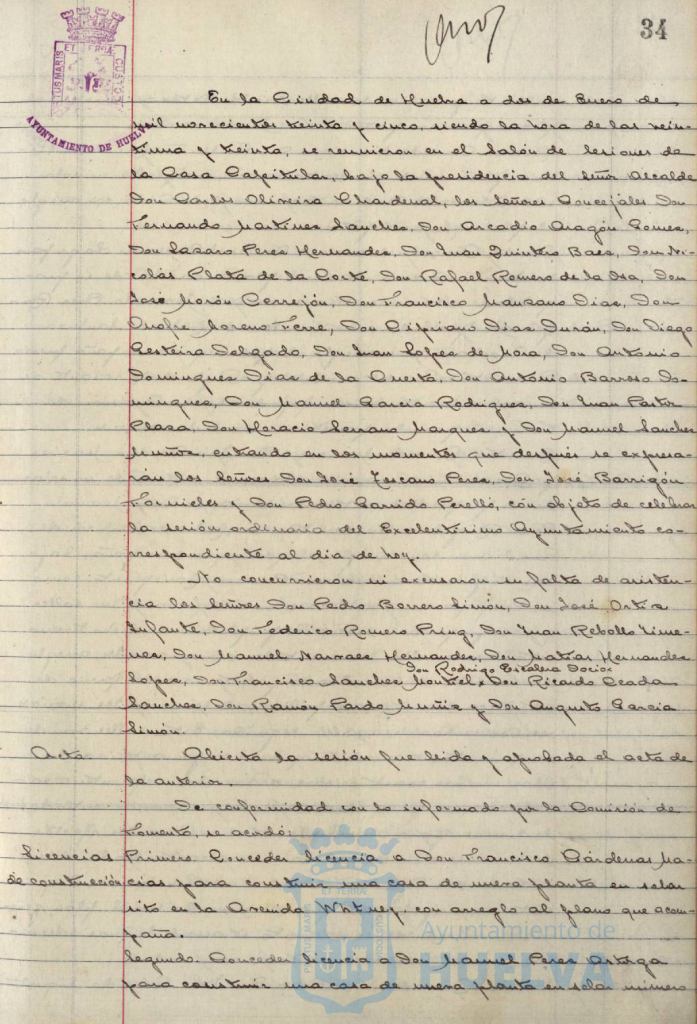 34
PORTUS MARIS ET TERRAE CUSTODIA
AYUNTAMIENTO DE HUELVA
En la Ciudad de Huelva a dos de Enero de
mil novecientos treinta y cinco, siendo la hora de las vein-
tiuna y treinta, se reunieron en el Salón de Sesiones de
la Casa Capitular, bajo la presidencia del Señor Alcalde
Don Carlos Oliveira Chardenal, los Señores Concejales Don
Fernando Martinez Sanchez, Don Arcadio Aragón Gomez,
Don Lazaro Perez Hernandez, Don Juan Quintero Baez, Don Ni-
colás Plata de la Corte, Don Rafael Romero de la Osa, Don
José Morón Cerrejón, Don Francisco Manzano Diaz, Don
Onofre Moreno Ferre, Don Cipriano Diaz Durán, Don Diego
Gesteira Delgado, Don Juan Lopez de Mora, Don Antonio
Dominguez Diaz de la Cuesta, Don Antonio Barroso Do-
minguez, Don Manuel Garcia Rodriguez, Don Juan Pastor
Plaza, Don Horacio Serrano Marquez y Don Manuel Sanchez
Muñoz, entrando en los momentos que después se expresa-
rán los Señores Don José Toscano Perez, Don José Barrigón
Fornieles y Don Pedro Garrido Perelló, con objeto de celebrar
la sesión ordinaria del Excelentísimo Ayuntamiento co-
rrespondiente al dia de hoy.
No concurrieron ni excusaron su falta de asisten-
cia los Señores Don Pedro Borrero Simón, Don José Ortiz
Infante, Don Federico Romero Pring, Don Juan Rebollo Jime-
nez, Don Manuel Narvaez Hernandez, Don Matias Hernandez
Don Rodrigo Escalera Docio
Lopez, Don Francisco Sanchez Montiel, Don Ricardo Ceada
Sanchez, Don Ramón Pardo Muñiz y Don Augusto Garcia
Simón.
Acta. Abierta la sesión fue leida y aprobada el acta de
la anterior.
De conformidad con lo informado por la Comisión de
Fomento, se acordó:
Licencias Primero. Conceder licencia a Don Francisco Cárdenas Ma-
de construcción cias para construir una casa de nueva planta en solar
sito en la Avenida Whtney, con arreglo al plano que acom-
paña.
Segundo. Conceder licencia a Don Manuel Perez Ortega
para construir una casa de nueva planta en solar número
Ayuntamiento de
HUELVA